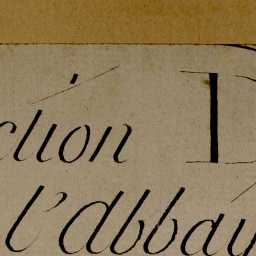 ction D
l'abbay